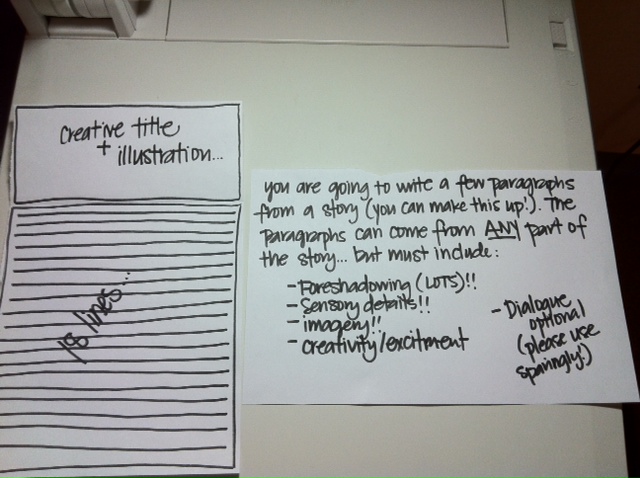 Creative title
+ illustration...
18 lines...
you are going to write a few paragraphs
from a story (you can make this up!). The
paragraphs can come from ANY part of
the story... but must include:
- Foreshadowing (LOTS)!!
- Sensory details!!
- imagery!!
- creativity/excitment
- Dialogue
optional
(please use
sparingly!)